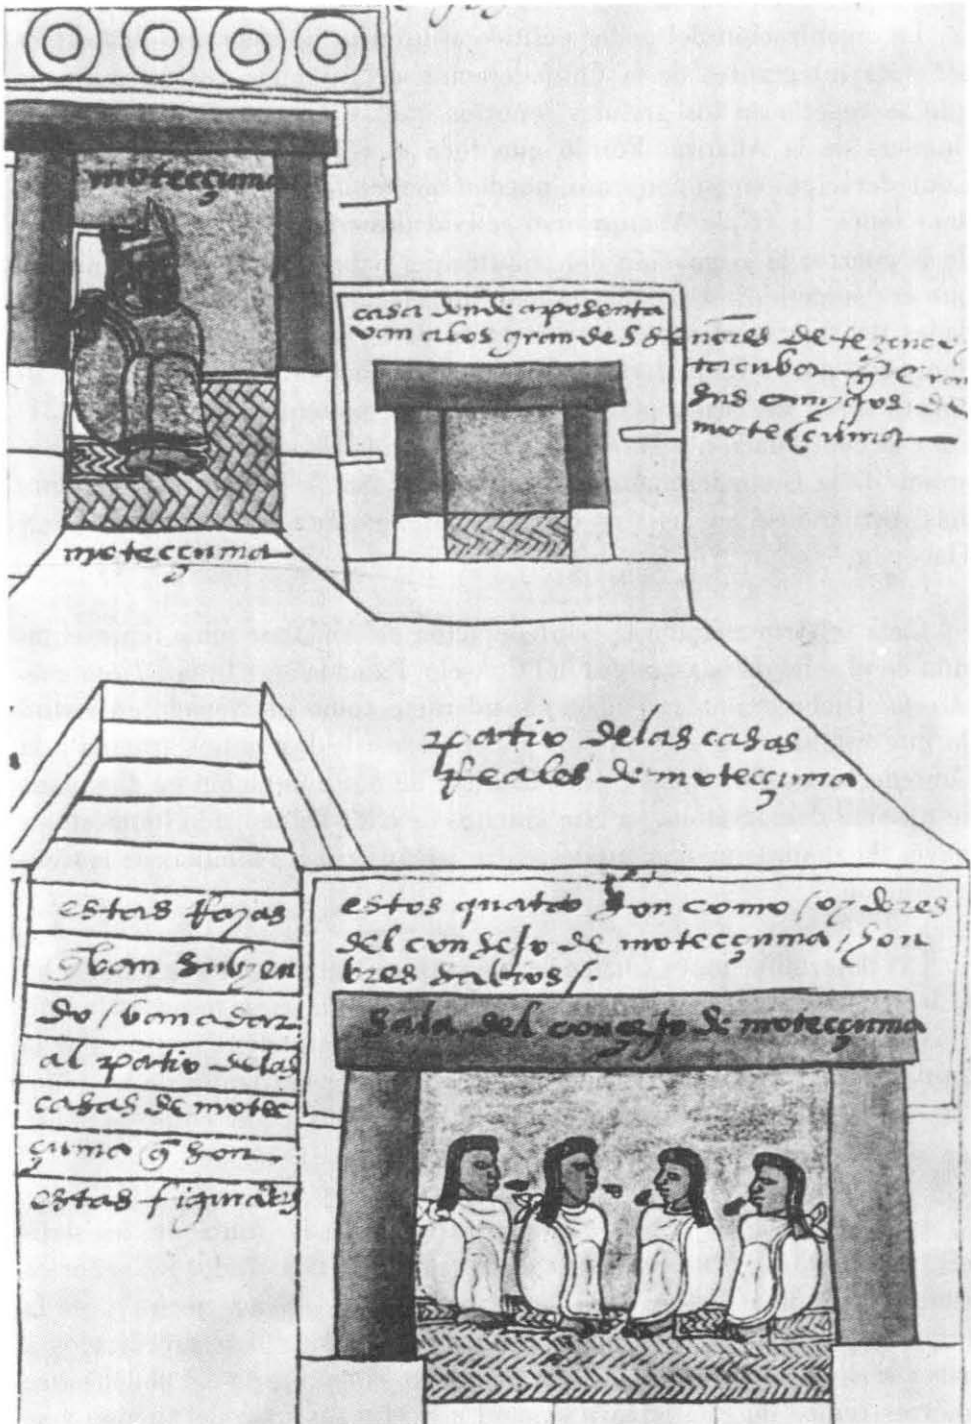 moteccuma
casa donde aposenta
van a los grandes señores de tezcuco
tacuba q̄ eran
sus amigos de
moteccuma
moteccuma
patio de las casas
Reales de moteccuma
estas Rayas
q̄ van subien
do / van a dar
al patio de las
casas de motec
çuma q̄ son
estas figuradas
estos quatro son como / oydores
del consejo de moteccuma / hon
bres sabios /.
Sala del consejo de moteccuma